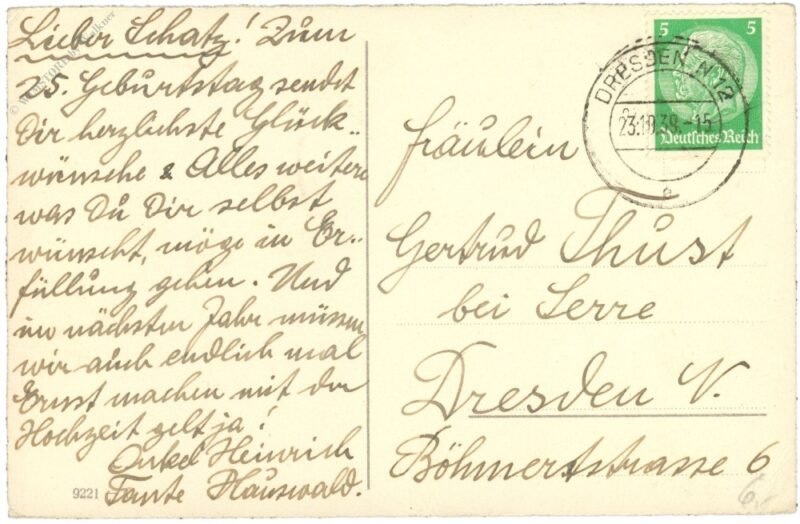 Lieber Schatz! Zum
25. Geburtstag sendet
Dir herzlichste Glück-
wünsche & Alles weitere
was Du Dir selbst
wünscht, möge in Er-
füllung gehen. Und
im nächsten Jahr müssen
wir auch endlich mal
Ernst machen mit der
Hochzeit gelt ja!
Onkel Heinrich
Tante Hauswald.
9221
5 5
Deutsches Reich
DRESDEN N 12
23.10.39.-15
e
Fräulein
Gertrud Thust
bei Serre
Dresden N.
Böhmertstrasse 6
6,-